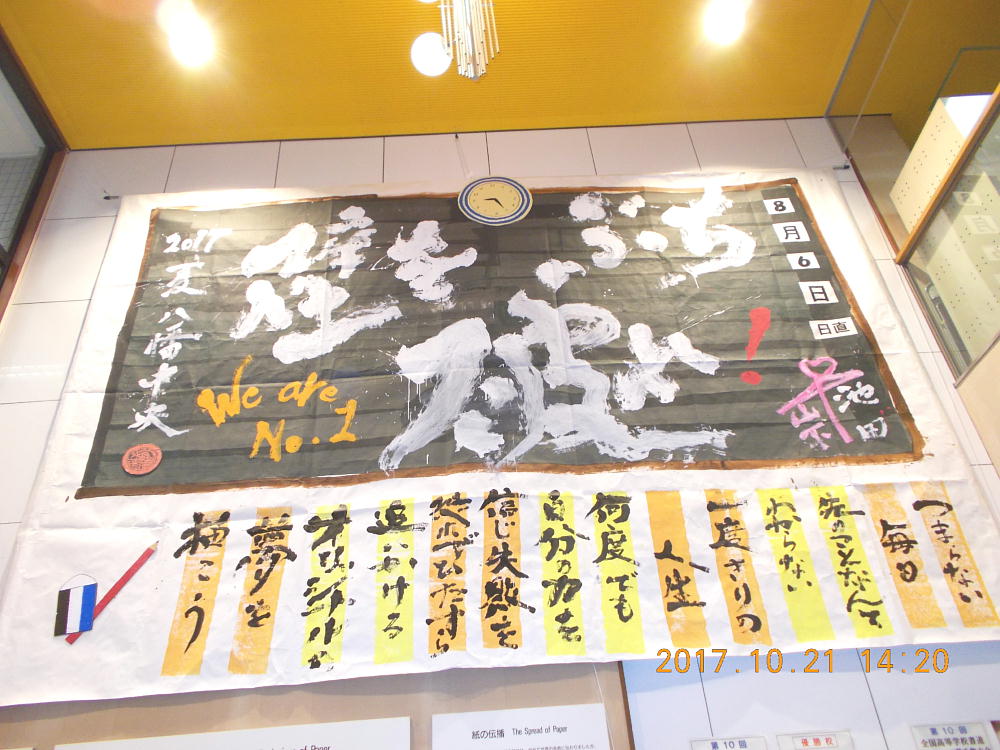 壁をぶち
破れ!
8
月
6
日
日直
池田
2017夏 八幡中央
We are
No.1
つまらない
毎日
先のことなんて
わからない
一度きりの
人生
何度でも
自分の力を
信じ失敗を
恐れずひたすら
追いかける
オリジナルな
夢を
描こう
2017.10.21 14:20
紙の伝播 The Spread of Paper
第10回
優勝校
第10回
全国高等学校書道